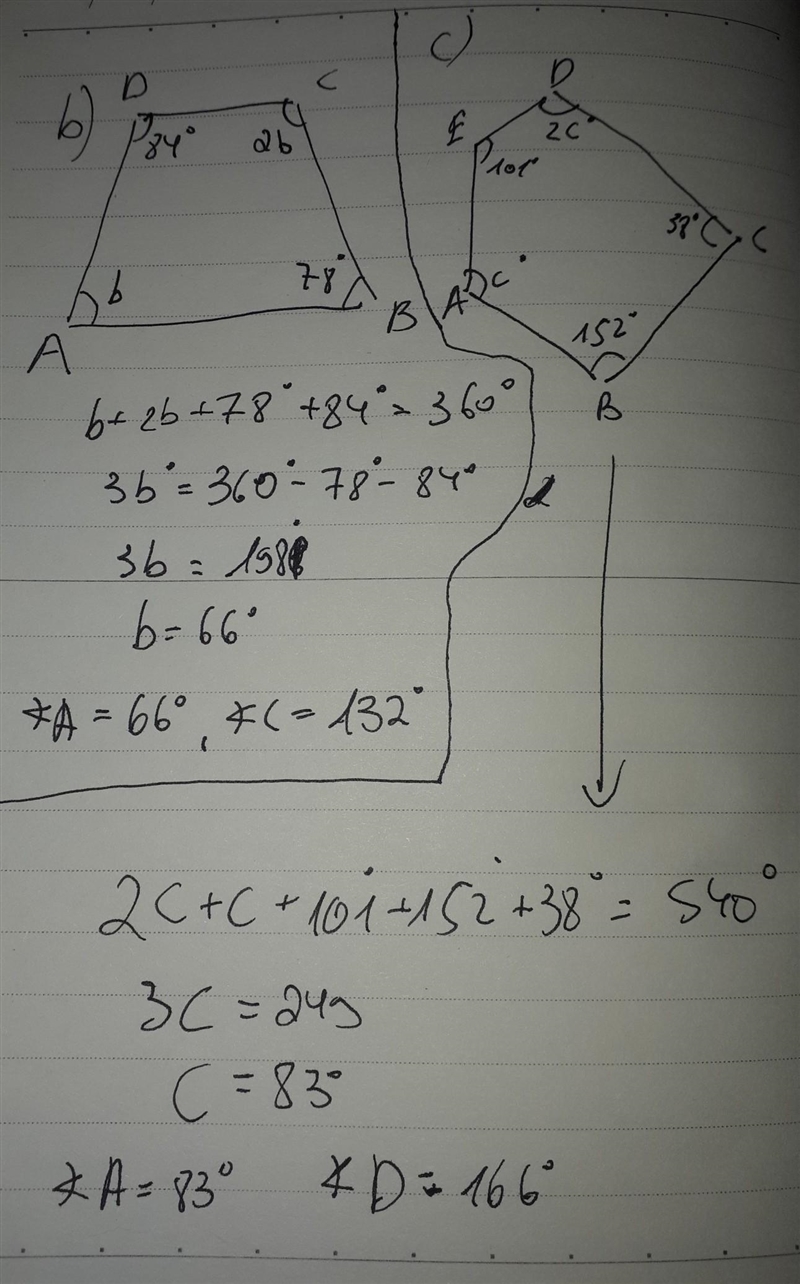 b)
D C
84° 2b
b 78°
A B
b + 2b + 78° + 84° = 360°
3b° = 360° - 78° - 84°
3b = 198
b = 66°
*A = 66°, *C = 132°
c)
D
E 2c°
101°
38° C
A c°
152°
B
2C + C + 101° + 152° + 38° = 540°
3C = 249
C = 83°
*A = 83° *D = 166°